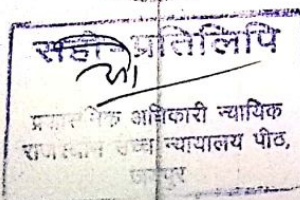 सही प्रतिलिपि
प्रशासनिक अधिकारी न्यायिक
राजस्थान उच्च न्यायालय पीठ,
जयपुर